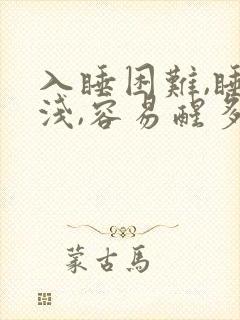 入睡困難,睡
淺,容易醒多
蒙古馬